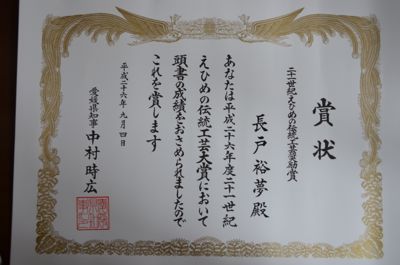 賞状
二十一世紀えひめの伝統工芸奨励賞
長戸裕夢殿
あなたは平成二十六年度二十一世紀
えひめの伝統工芸大賞において
頭書の成績をおさめられましたので
これを賞します
平成二十六年九月四日
愛媛県知事 中村時広